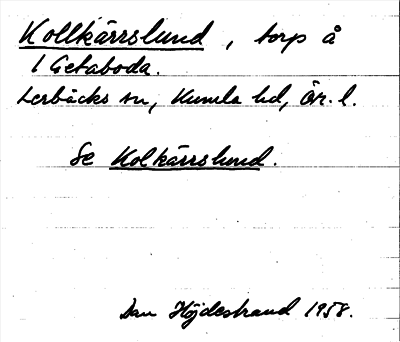 Kollkärrslund, torp å
1 Getaboda.
Lerbäcks sn, Kumla hd, Ör. l.
Se Kolkärrslund.
Dan Höjdestrand 1958.